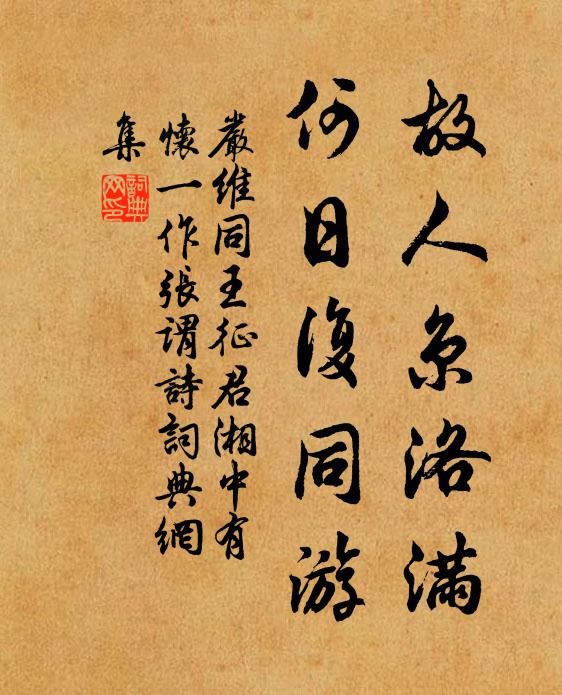 故人京洛滿
何日復同游
嚴維同王征君湘中有
懷一作張謂詩詞典網
集
詞典
网印